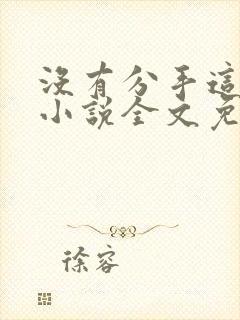 沒有分手這
小說全文免
徐容